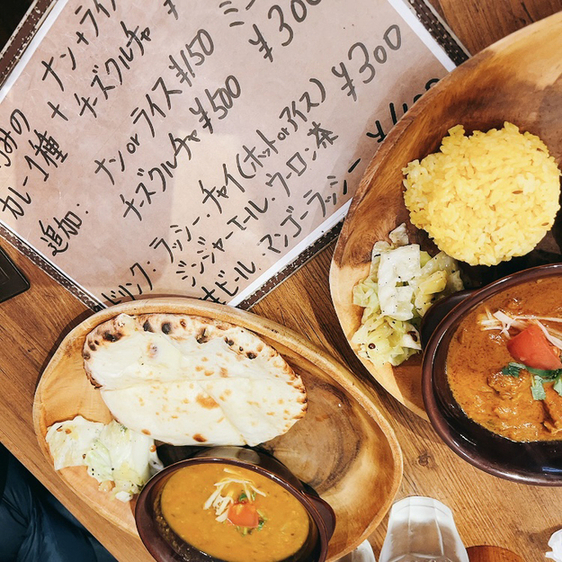 ナン+ライ
みの + チーズクルチャ ¥
カレー1種
追加: ナンorライス¥150 ミニ ¥300
チーズクルチャ¥500
ドリンク・ラッシー・チャイ(ホットorアイス) ¥300
ジンジャーエール・ウーロン茶
生ビール・マンゴーラッシー